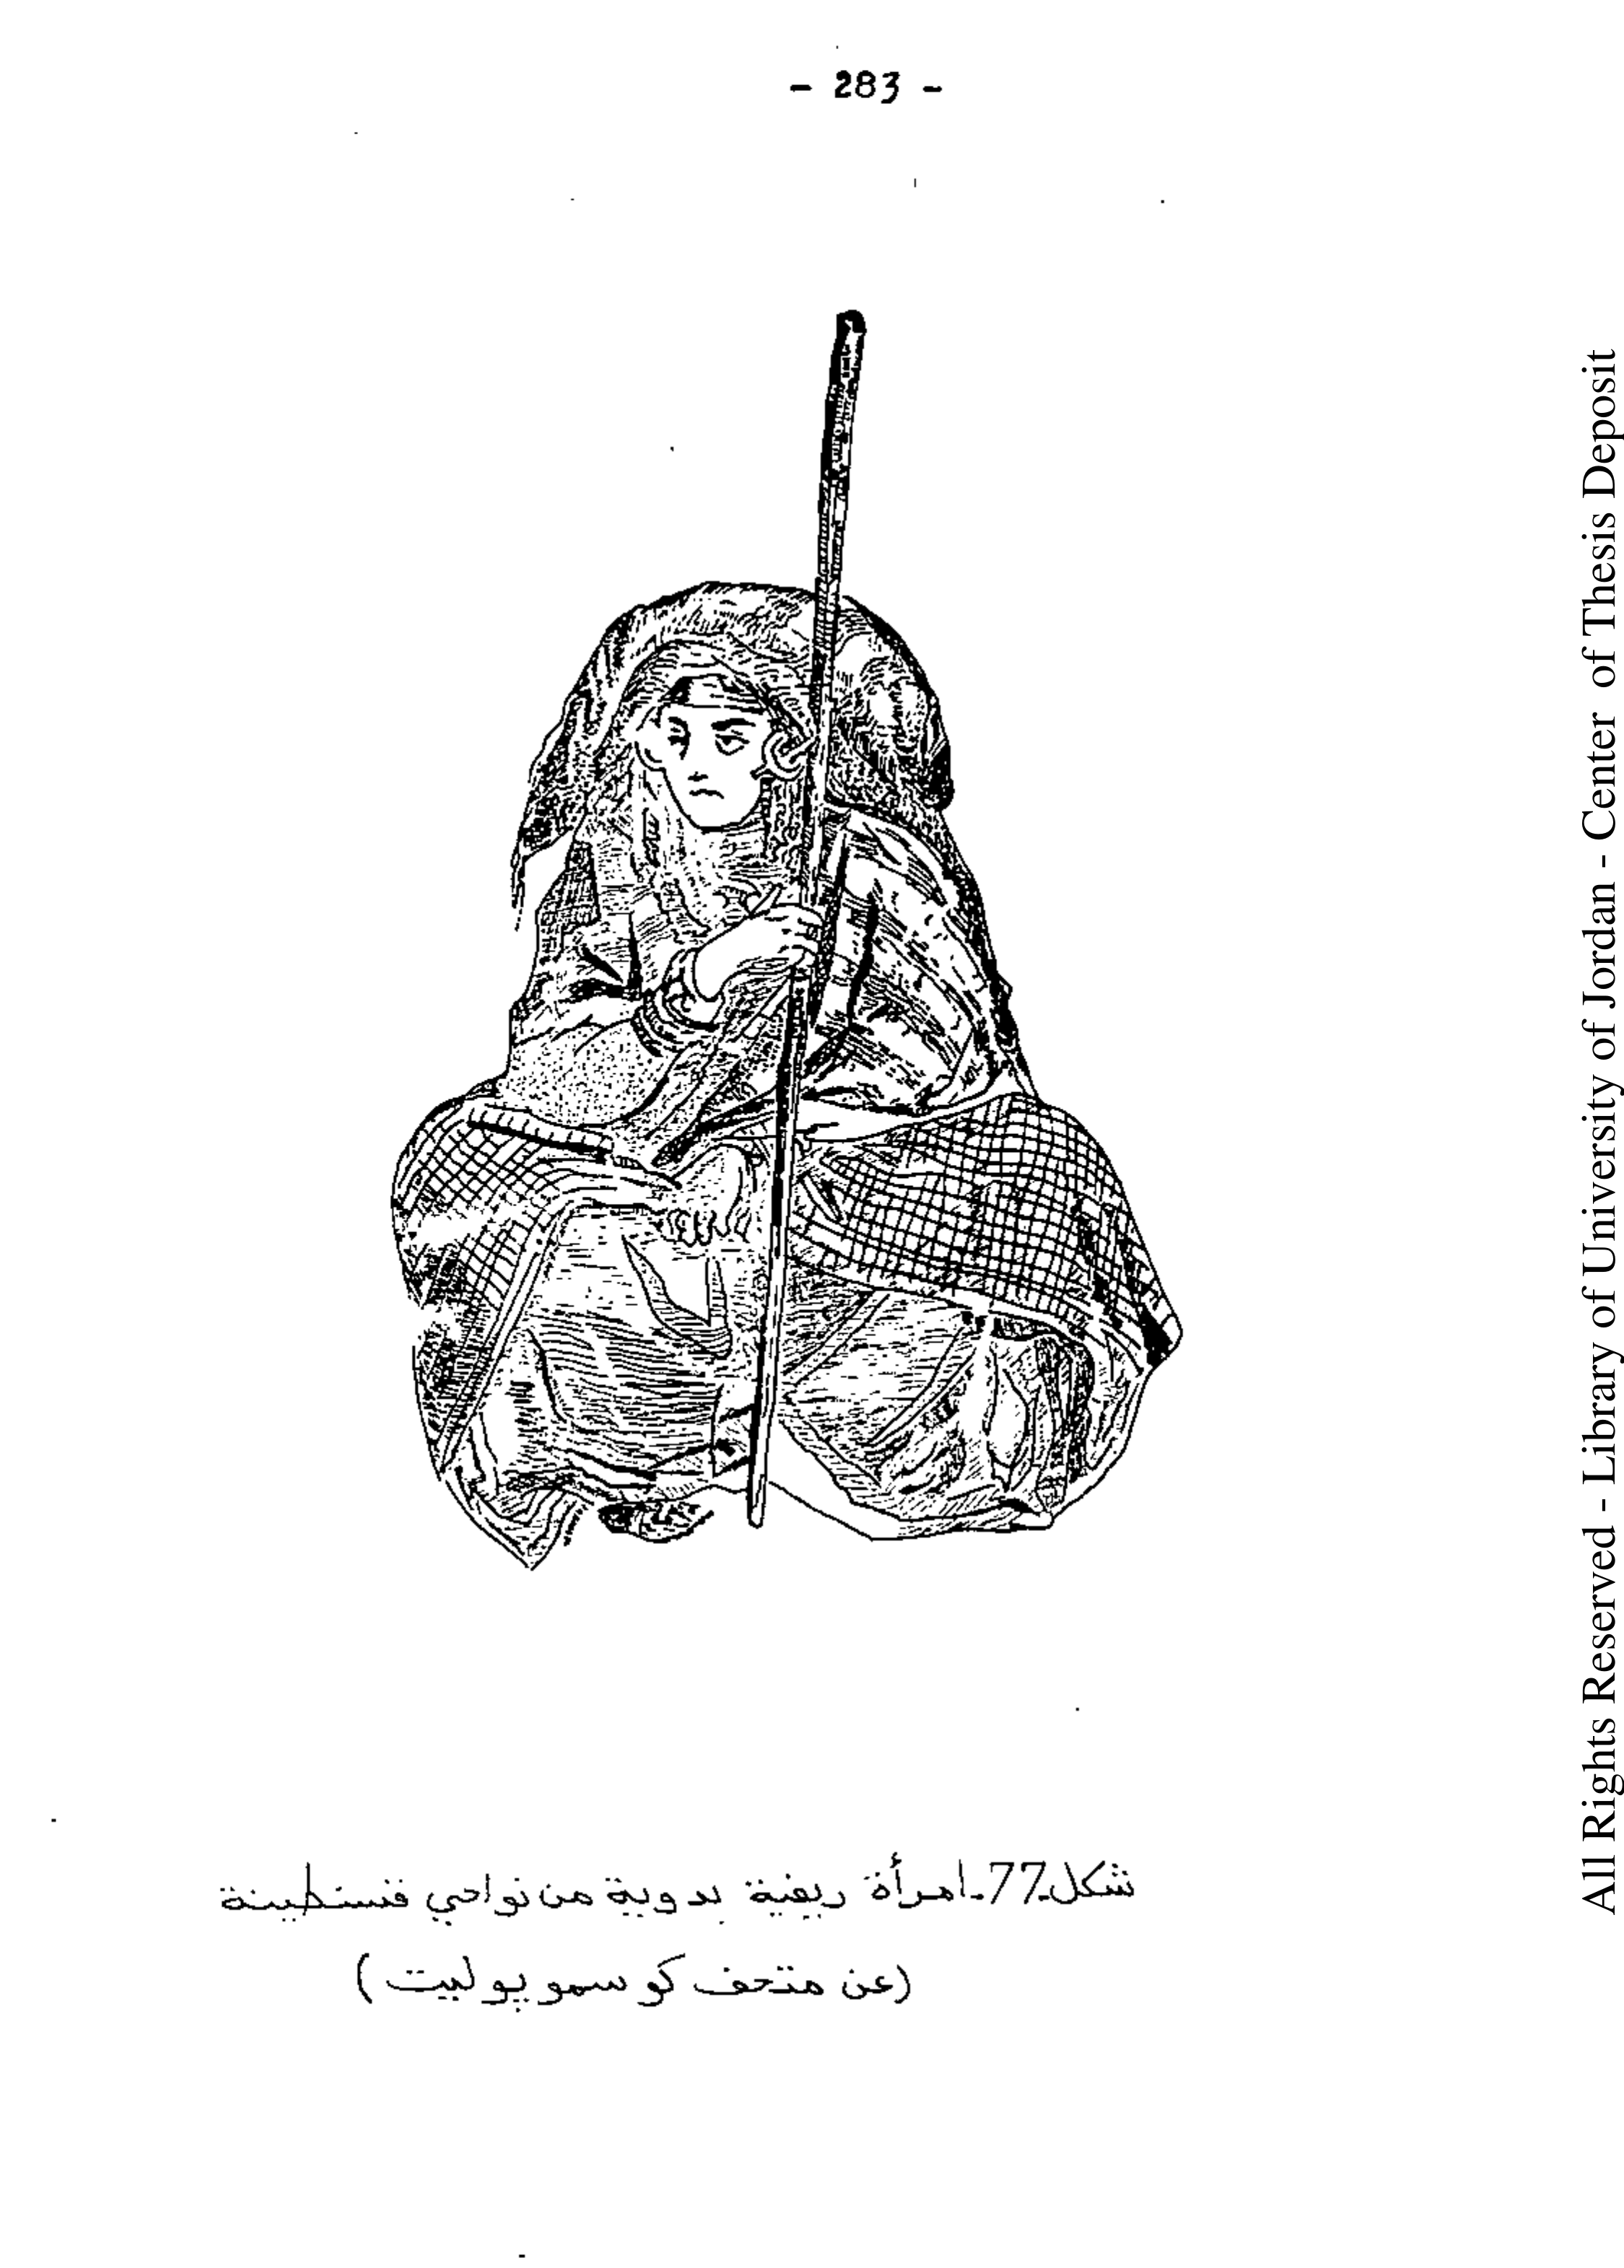 - 283 -
شكل.77.امرأة ريفية بدوية من نواحي قسنطينة
(عن متحف كوسموبوليت)
All Rights Reserved - Library of University of Jordan - Center of Thesis Deposit